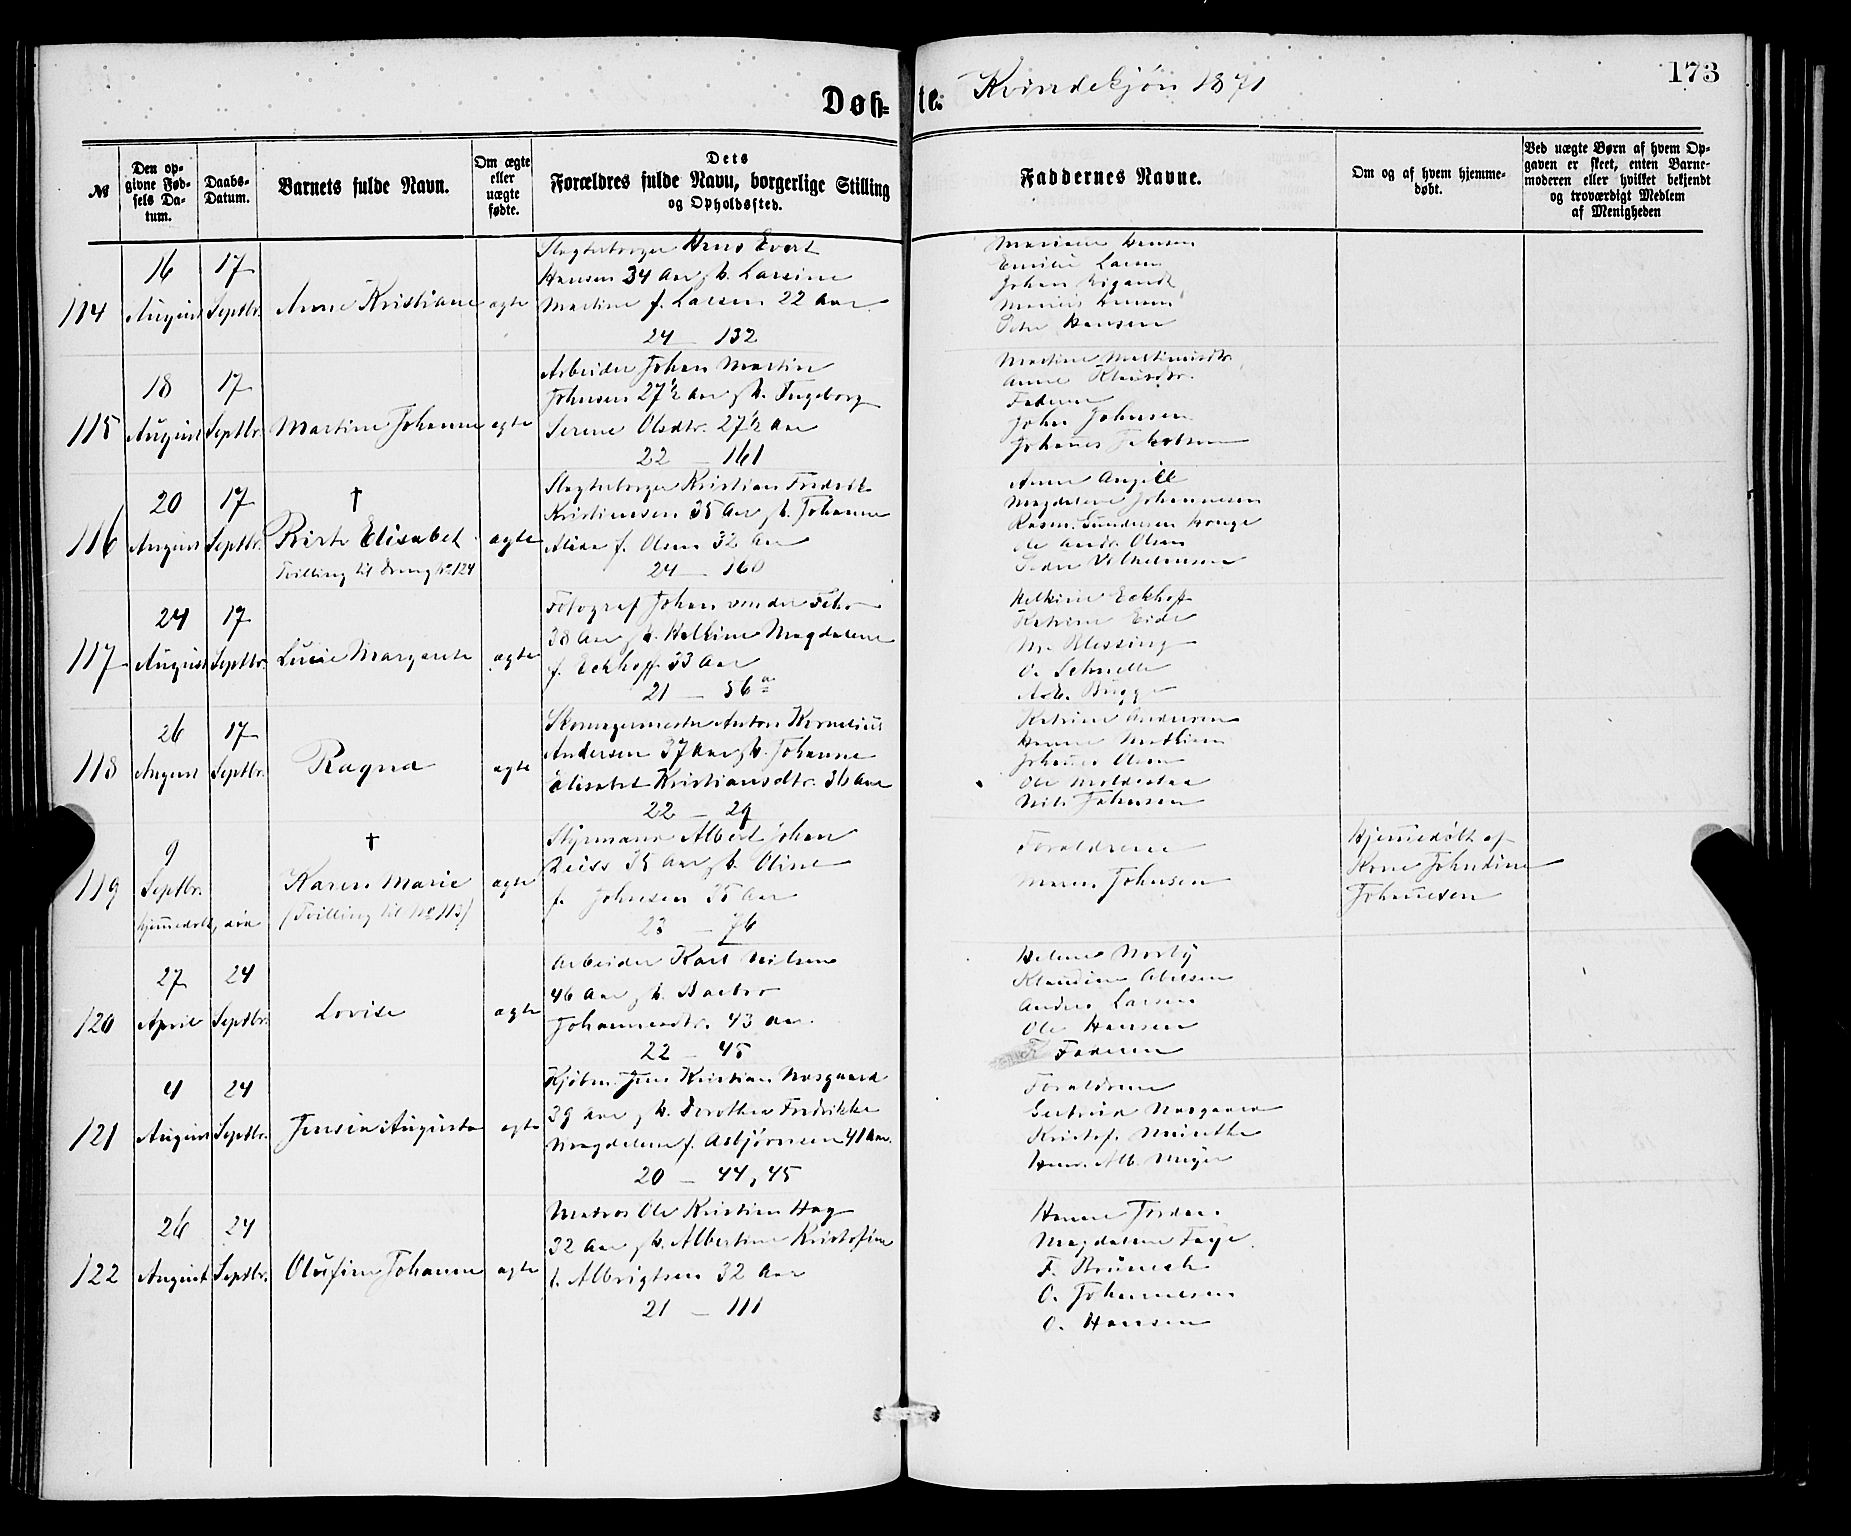 Døb- te. Kvindekjøn 1871
173
№
Den op-
givne Fød-
sels Da-
tum.
Daabs-
Datum.
Barnets fulde Navn.
Om ægte
eller
uægte
fødte.
Dets
Forældres fulde Navn, borgerlige Stilling
og Opholdssted.
Faddernes Navne.
Om og af hvem hjemme-
døbt.
Ved uægte Børn af hvem Op-
gaven er skeet, enten Barne-
moderen eller hvilket bekjendt
og troværdigt Medlem
af Menigheden
114
16
August
17
Septbr.
Anne Kristiane
ægte
Slagterborger Hans Evert
Hansen 34 Aar, h. Larsine
Martine f. Larsen 22 Aar
24 — 132
Mariane Hansen
Emilie Larsen
Johan Wigandt
Hansen
Peter Hansen
115
18
August
17
Septbr.
Martine Johanne
ægte
Arbeider Johan Martin
Johnsen 27½ Aar, h. Ingeborg
Serene Olsdtr. 27½ Aar
22 — 161
Martine Martinusdtr.
Anne
Faderen
Johan Johnsen
Johannes Jakobsen
116
20
August
17
Septbr.
†
Birte Elisabet
Tvilling til Dreng № 124
ægte
Slagterborger Kristian Fredrik
Kristiansen 35 Aar, h. Johanne
Alida f. Olsen 32 Aar
24 — 160
Anne
Magdalene Johannesen
Rasm. Gundersen Hauge
Ole Andr. Olsen
Peder Vilhelmsen
117
24
August
17
Septbr.
Lucie Margrete
ægte
Fotograf Johan von der Fehr
38 Aar, h. Helkine Magdalene
f. Eckhoff 33 Aar
21 — 56a
Helkine Eckhoff
Katrine Eide
M. Blessing
O. Schnelle
Brügge
118
26
August
17
Septbr.
Ragna
ægte
Skomagermester Anton Kornelius
Andersen 37 Aar, h. Johanne
Elisabet Kristiansdtr. 36 Aar
22 — 29
Katrine Andersen
Hanne Mathisen
Johannes Olsen
Ole Moldestad
Nils Johnsen
119
9
Septbr.
hjemmedøbt, død
†
Karen Marie
(Tvilling til № 113)
ægte
Styrmand Albert Johan
Zeiss 35 Aar, h. Oline
f. Johnsen 35 Aar
23 — 76
Forældrene
Maren Johnsen
Hjemmedøbt af
Johndine
Johannesen
120
27
April
24
Septbr.
Lovise
ægte
Arbeider Karl Nilsen
46 Aar, h. Barbro
Johannesdtr. 43 Aar.
22 — 45
Helene Norby
Klaudine Olsen
Anders Larsen
Ole Hansen
Faderen
121
4
August
24
Septbr.
Jensine Augusta
ægte
Kjøbm. Jens Kristian Norgaard
39 Aar, h. Dorothea Fredrikke
Magdalene f. Asbjørnsen 41 Aar.
20 — 44, 45
Forældrene
Gertrud Norgaard
Kristof. Munthe
Henr. Alb. Meyer
122
26
August
24
Septbr.
Olufine Johanne
ægte
Matros Ole Kristian Hag
32 Aar, h. Albertine Kristofine
f. Albrigtsen 32 Aar
21 — 111
Hanne Jordan
Magdalene Faye
F.
O. Johannesen
O. Hansen